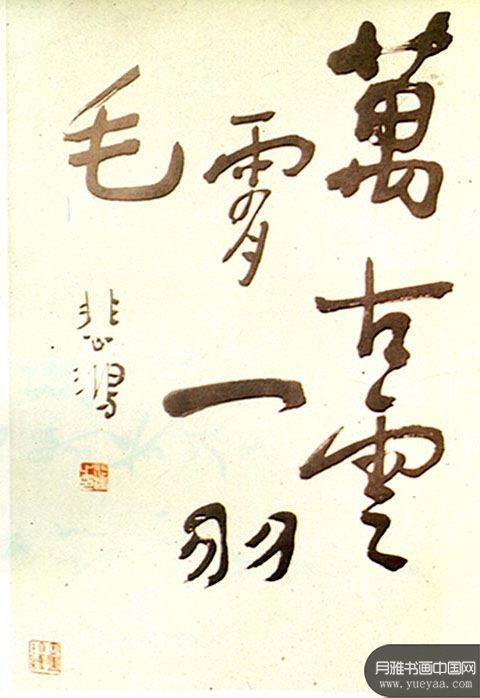 萬古雲
霄一羽
毛
悲鴻
月雅书画中国网
www.yueyaa.com